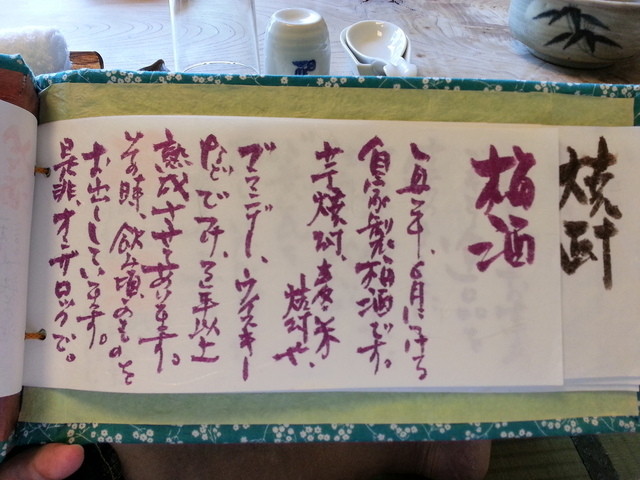 焼酎
梅酒
毎年、6月につける
自家製梅酒です。
芋焼酎、麦・米
焼酎や、
ブランデー、ウイスキー
などでつけ、年以上
熟成させてあります。
その時、飲み頃のものを
お出ししています。
是非、オンザロックで。